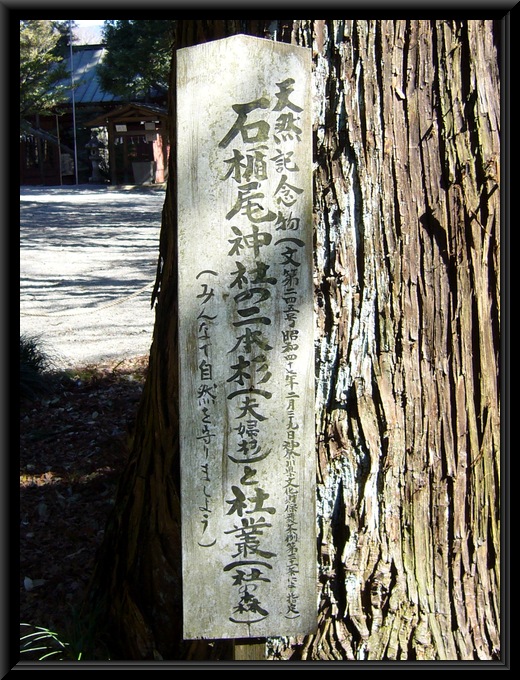 天然記念物(文第二四五号 昭和四十年二月二九日 神奈川県文化財保護条例第三十一条により指定)
石楯尾神社の二本杉(夫婦杉)と社叢(社の森)
(みんなで自然を守りましょう)